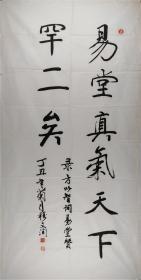 易堂真氣天下
罕二矣
录方以智詞易堂贊
丁丑